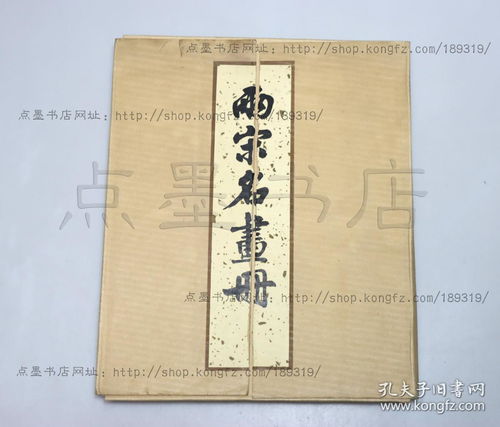 点墨书店网址：http://shop.kongfz.com/189319/
点墨书店网址：http://shop.kongfz.com/189319/
兩宋名畫册
点墨书店
点墨书店网址：http://shop.kongfz.com/189319/
点墨书店网址：http://shop.kongfz.com/189319/
孔夫子旧书网
www.kongfz.com